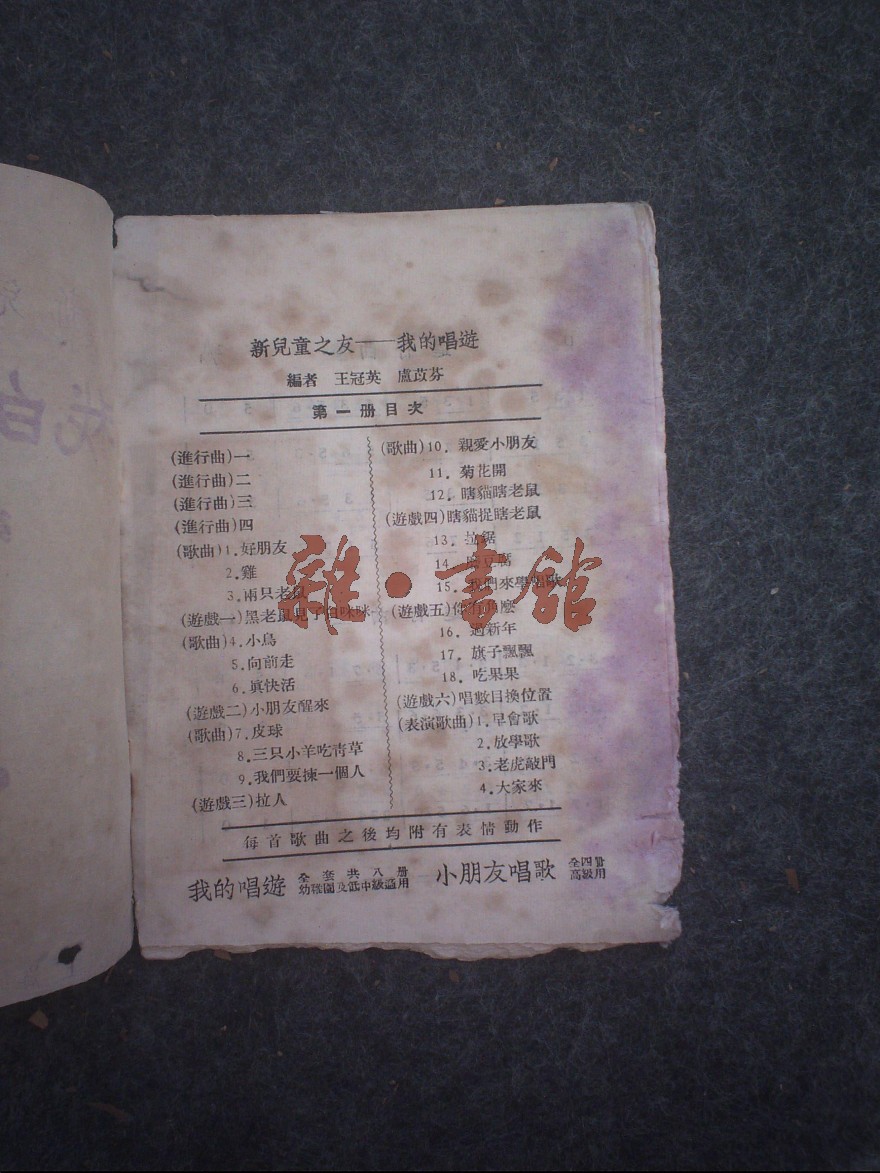 新兒童之友——我的唱遊
編者 王冠英 盧苡芬
第一册目次
(進行曲)一
(進行曲)二
(進行曲)三
(進行曲)四
(歌曲)1.好朋友
2.雞
3.兩只老鼠
(遊戲一)黑老鼠兒子白咪咪
(歌曲)4.小鳥
5.向前走
6.眞快活
(遊戲二)小朋友醒來
(歌曲)7.皮球
8.三只小羊吃靑草
9.我們要揀一個人
(遊戲三)拉人
(歌曲)10.親愛小朋友
11.菊花開
12.瞎貓瞎老鼠
(遊戲四)瞎貓捉瞎老鼠
13.拉鋸
14.豆腐
15.我們來學唱歌
(遊戲五)你有麼
16.過新年
17.旗子飄飄
18.吃果果
(遊戲六)唱數目換位置
(表演歌曲)1.早會歌
2.放學歌
3.老虎敲門
4.大家來
每首歌曲之後均附有表情動作
我的唱遊 全套共八册 幼稚園及低中級適用 小朋友唱歌 全四册 高級用
雜·書館